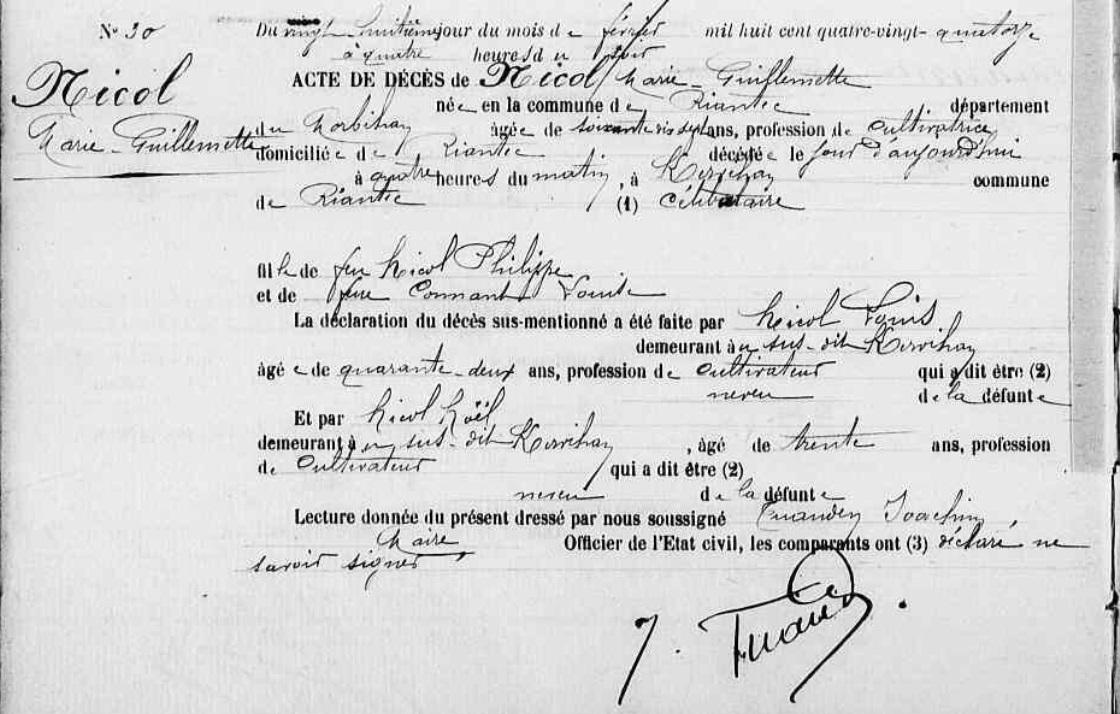 N° 30
Nicol
Marie-Guillemette
Du vingt huitième jour du mois de février mil huit cent quatre-vingt-quatorze
à quatre heures du soir
ACTE DE DÉCÈS de Nicol Marie-Guillemette
née en la commune de Riantec, département
du Morbihan âgée de soixante dix sept ans, profession de cultivatrice
domiciliée de Riantec décédée le jour d'aujourd'hui
à quatre heures du matin, à Kervihan commune
de Riantec (1) Célibataire
fille de feu Nicol Philippe
et de feue Connant Louise
La déclaration du décès sus-mentionné a été faite par Nicol Louis
demeurant au sus-dit Kervihan
âgé e de quarante-deux ans, profession de cultivateur qui a dit être (2)
neveu de la défunte
Et par Nicol Noël
demeurant au sus-dit Kervihan, âgé de trente ans, profession
de Cultivateur qui a dit être (2)
neveu de la défunte
Lecture donnée du présent dressé par nous soussigné Joachim,
Maire Officier de l'Etat civil, les comparants ont (3) déclaré ne
savoir signer
J.